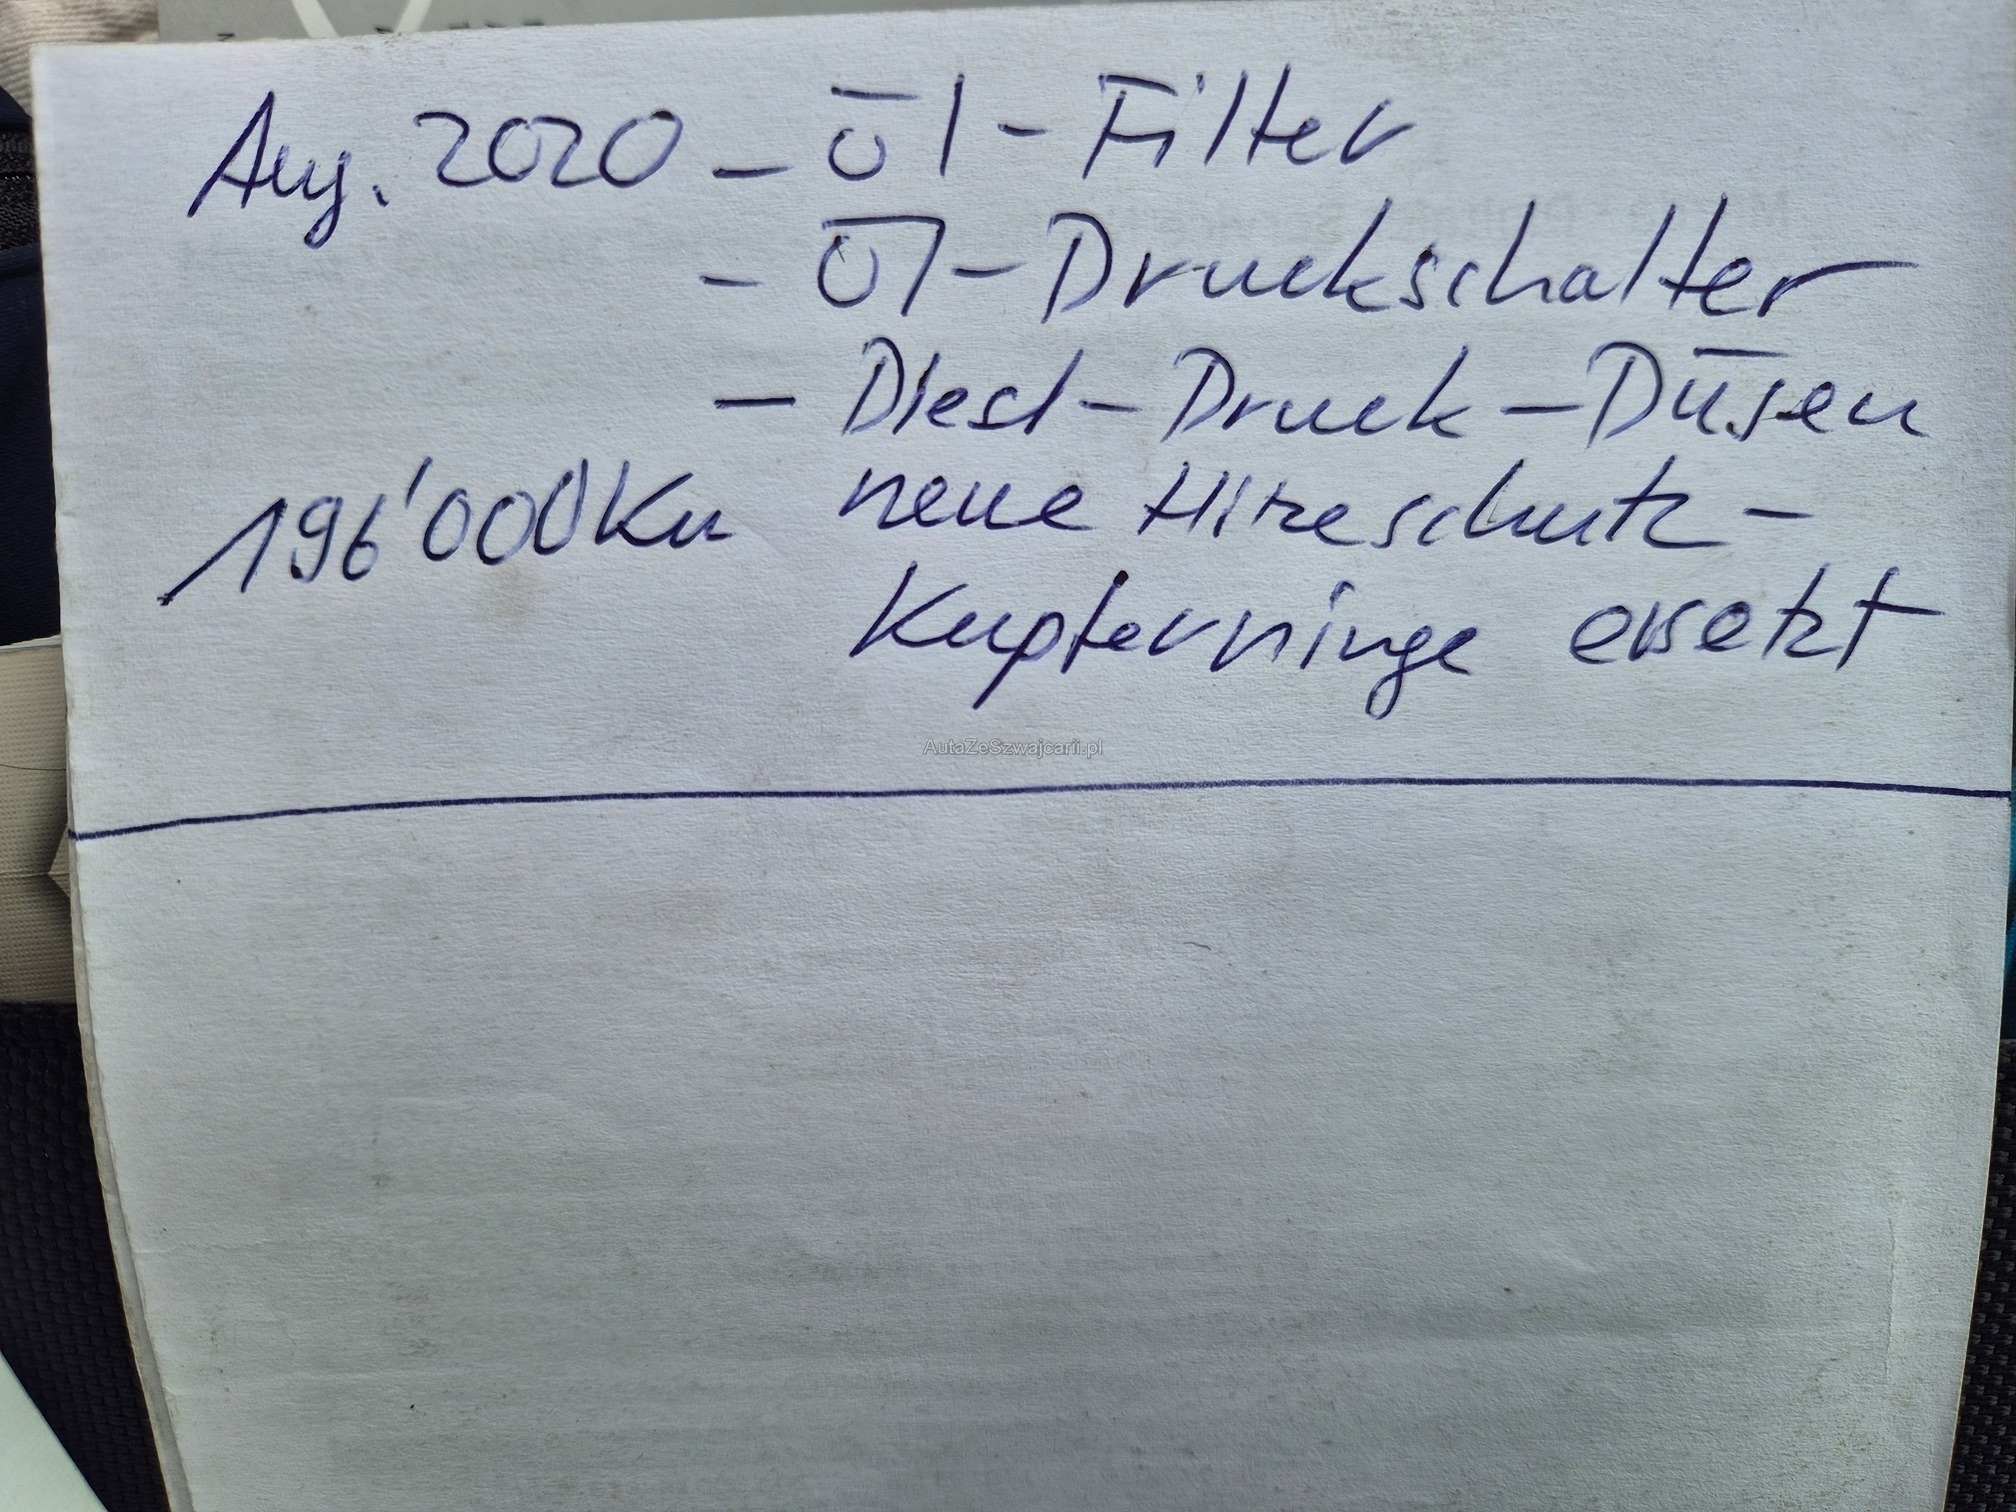 Aug. 2020 – Öl – Filter
– Öl – Druckschalter
– Diesel – Druck – Düsen
196'000 Km neue Hitzeschutz –
Kupferringe ersetzt
AutaZeSzwajcarii.pl